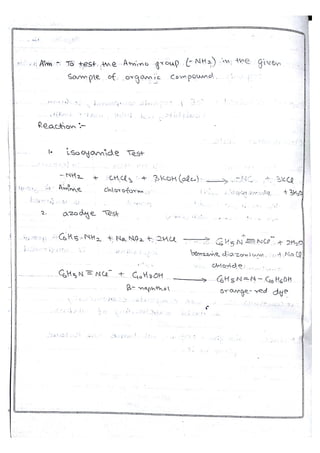 Aim - To test the Amino group (-NH2) in the given
sample of organic compound.
Reaction:-
1. isocyanide Test
-NH2 + CHCl3 + 3KOH (alc) → -NC + 3KCl
Amine chloroform + 3H2O
2. azodye Test
C6H5-NH2 + NaNO2 + 2HCl → C6H5N≡NCl + 2H2O
benzene diazonium + NaCl
chloride
C6H5N≡NCl + C10H7OH → C6H5N=N-C10H6OH
β-naphthol orange-red dye